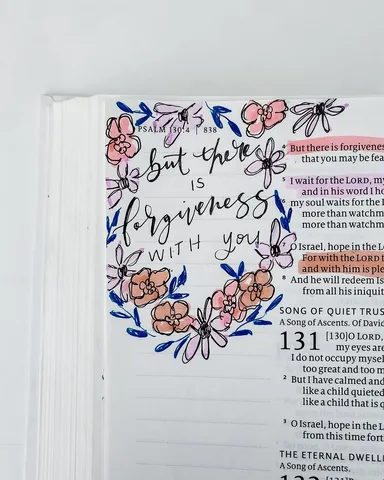 PSALM 130:4 | 838
but there
IS
forgiveness
WITH you
4 But there is forgiveness
that you may be fea
5 I wait for the LORD, my
and in his word I ho
6 my soul waits for the
more than watchm
more than watchm
7 O Israel, hope in the L
For with the LORD t
and with him is ple
8 And he will redeem Is
from all his iniquit
SONG OF QUIET TRUS
A Song of Ascents. Of David
131 [130]O LORD,
my eyes are
I do not occupy mysel
too great and too m
2 But I have calmed and
like a child quieted
like a child that is q
3 O Israel, hope in the L
from this time fort
THE ETERNAL DWELL
A Song of Ascents.